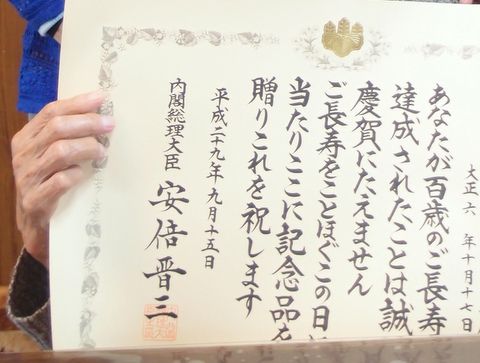 大正六年十月十七日
あなたが百歳のご長寿
達成されたことは誠
慶賀にたえません
ご長寿をことほぐこの日
当たりここに記念品を
贈りこれを祝します
平成二十九年九月十五日
内閣総理大臣 安倍晋三